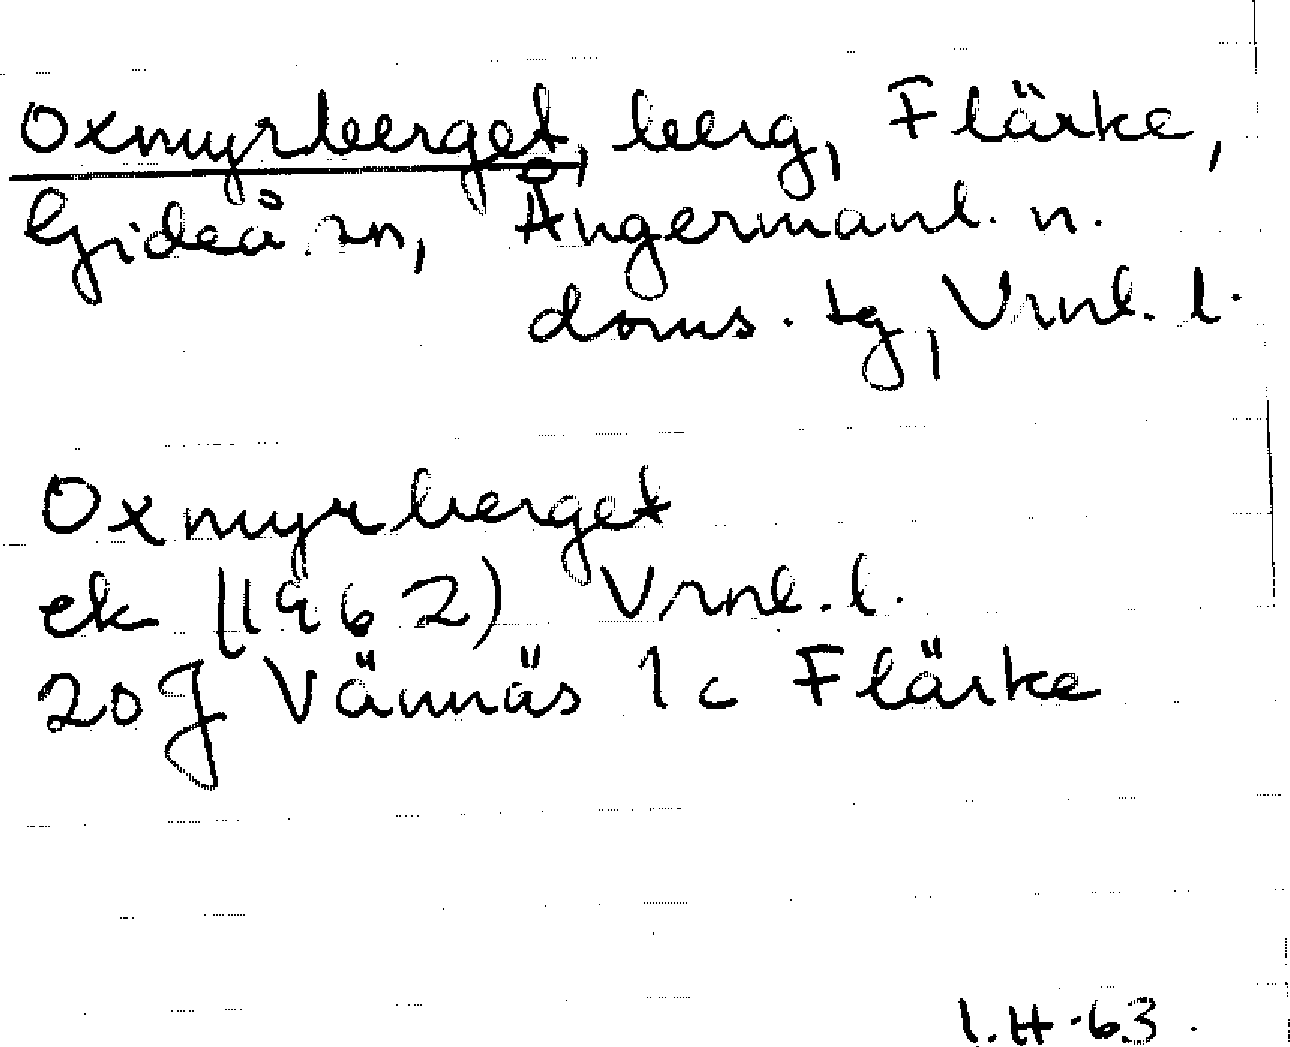 Oxmyrberget, berg, Flärke,
Gideå sn, Ångermanl. n.
doms. tg, Vrnl. l.
Oxmyrberget
ek (1962) Vrnl. l.
20J Vännäs 1c Flärke
I.H-63.